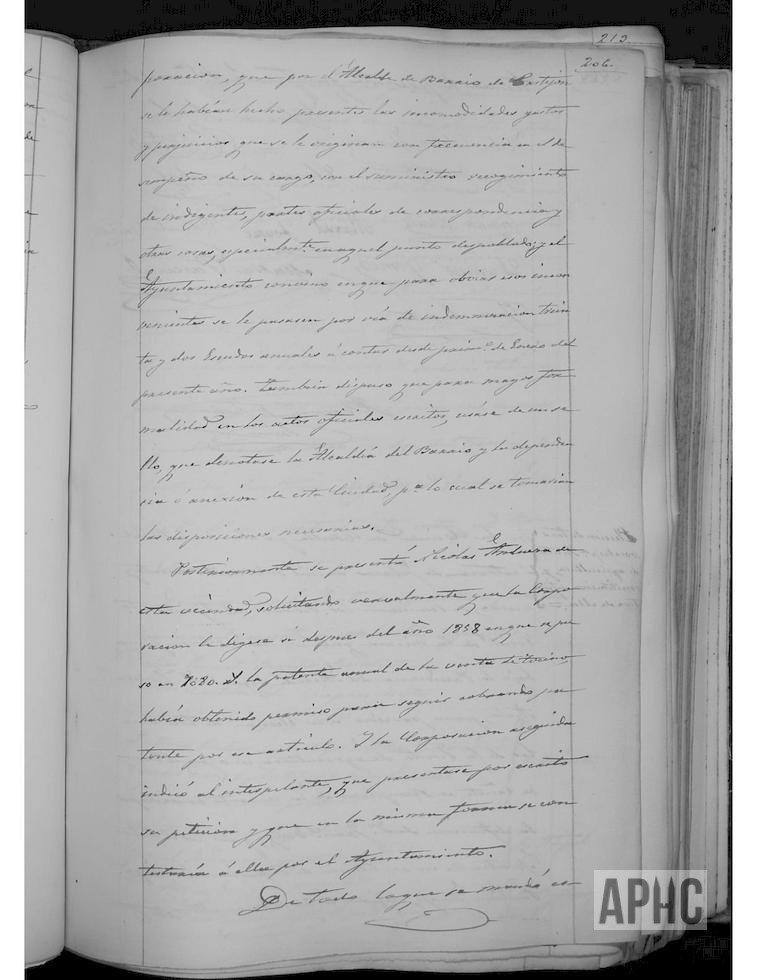 213
206.
poracion, que por el Alcalde de Barrio de Castejon
se le habian hecho presentes las incomodidades gastos
y perjuicios que se le originan con frecuencia en el de
sempeño de su cargo, con el suministro recogimiento
de indigentes, partes oficiales de correspondencia y
otras cosas, especialmte. en aquel punto despoblado; y el
Ayuntamiento convino en que para obviar esos incon
venientes se le pasasen por via de indemnizacion trein
ta y dos Escudos anuales á contar desde primo. de Enero del
presente año. Tambien dispuso que para mayor for
malidad en los actos oficiales escritos, usáse de un se
llo, que denotase la Alcaldía del Barrio y la dependen
cia ó anexión de esta Ciudad, pa. lo cual se tomarian
las disposiciones necesarias.
Posteriormente se presentó Nicolas Anduera de
esta vecindad, solicitando verbalmente que la Corpo
racion le digese si despues del año 1858 en que se pu
so en 7020. la patente anual de la venta de tocino,
habia obtenido permiso para seguir cobrando pa
tente por ese artículo. Y la Corporacion enseguida
indicó al interpelante, que presentase por escrito
su peticion y que en la misma forma se con
testaria á ella por el Ayuntamiento.
De todo lo que se mandó es
APHC